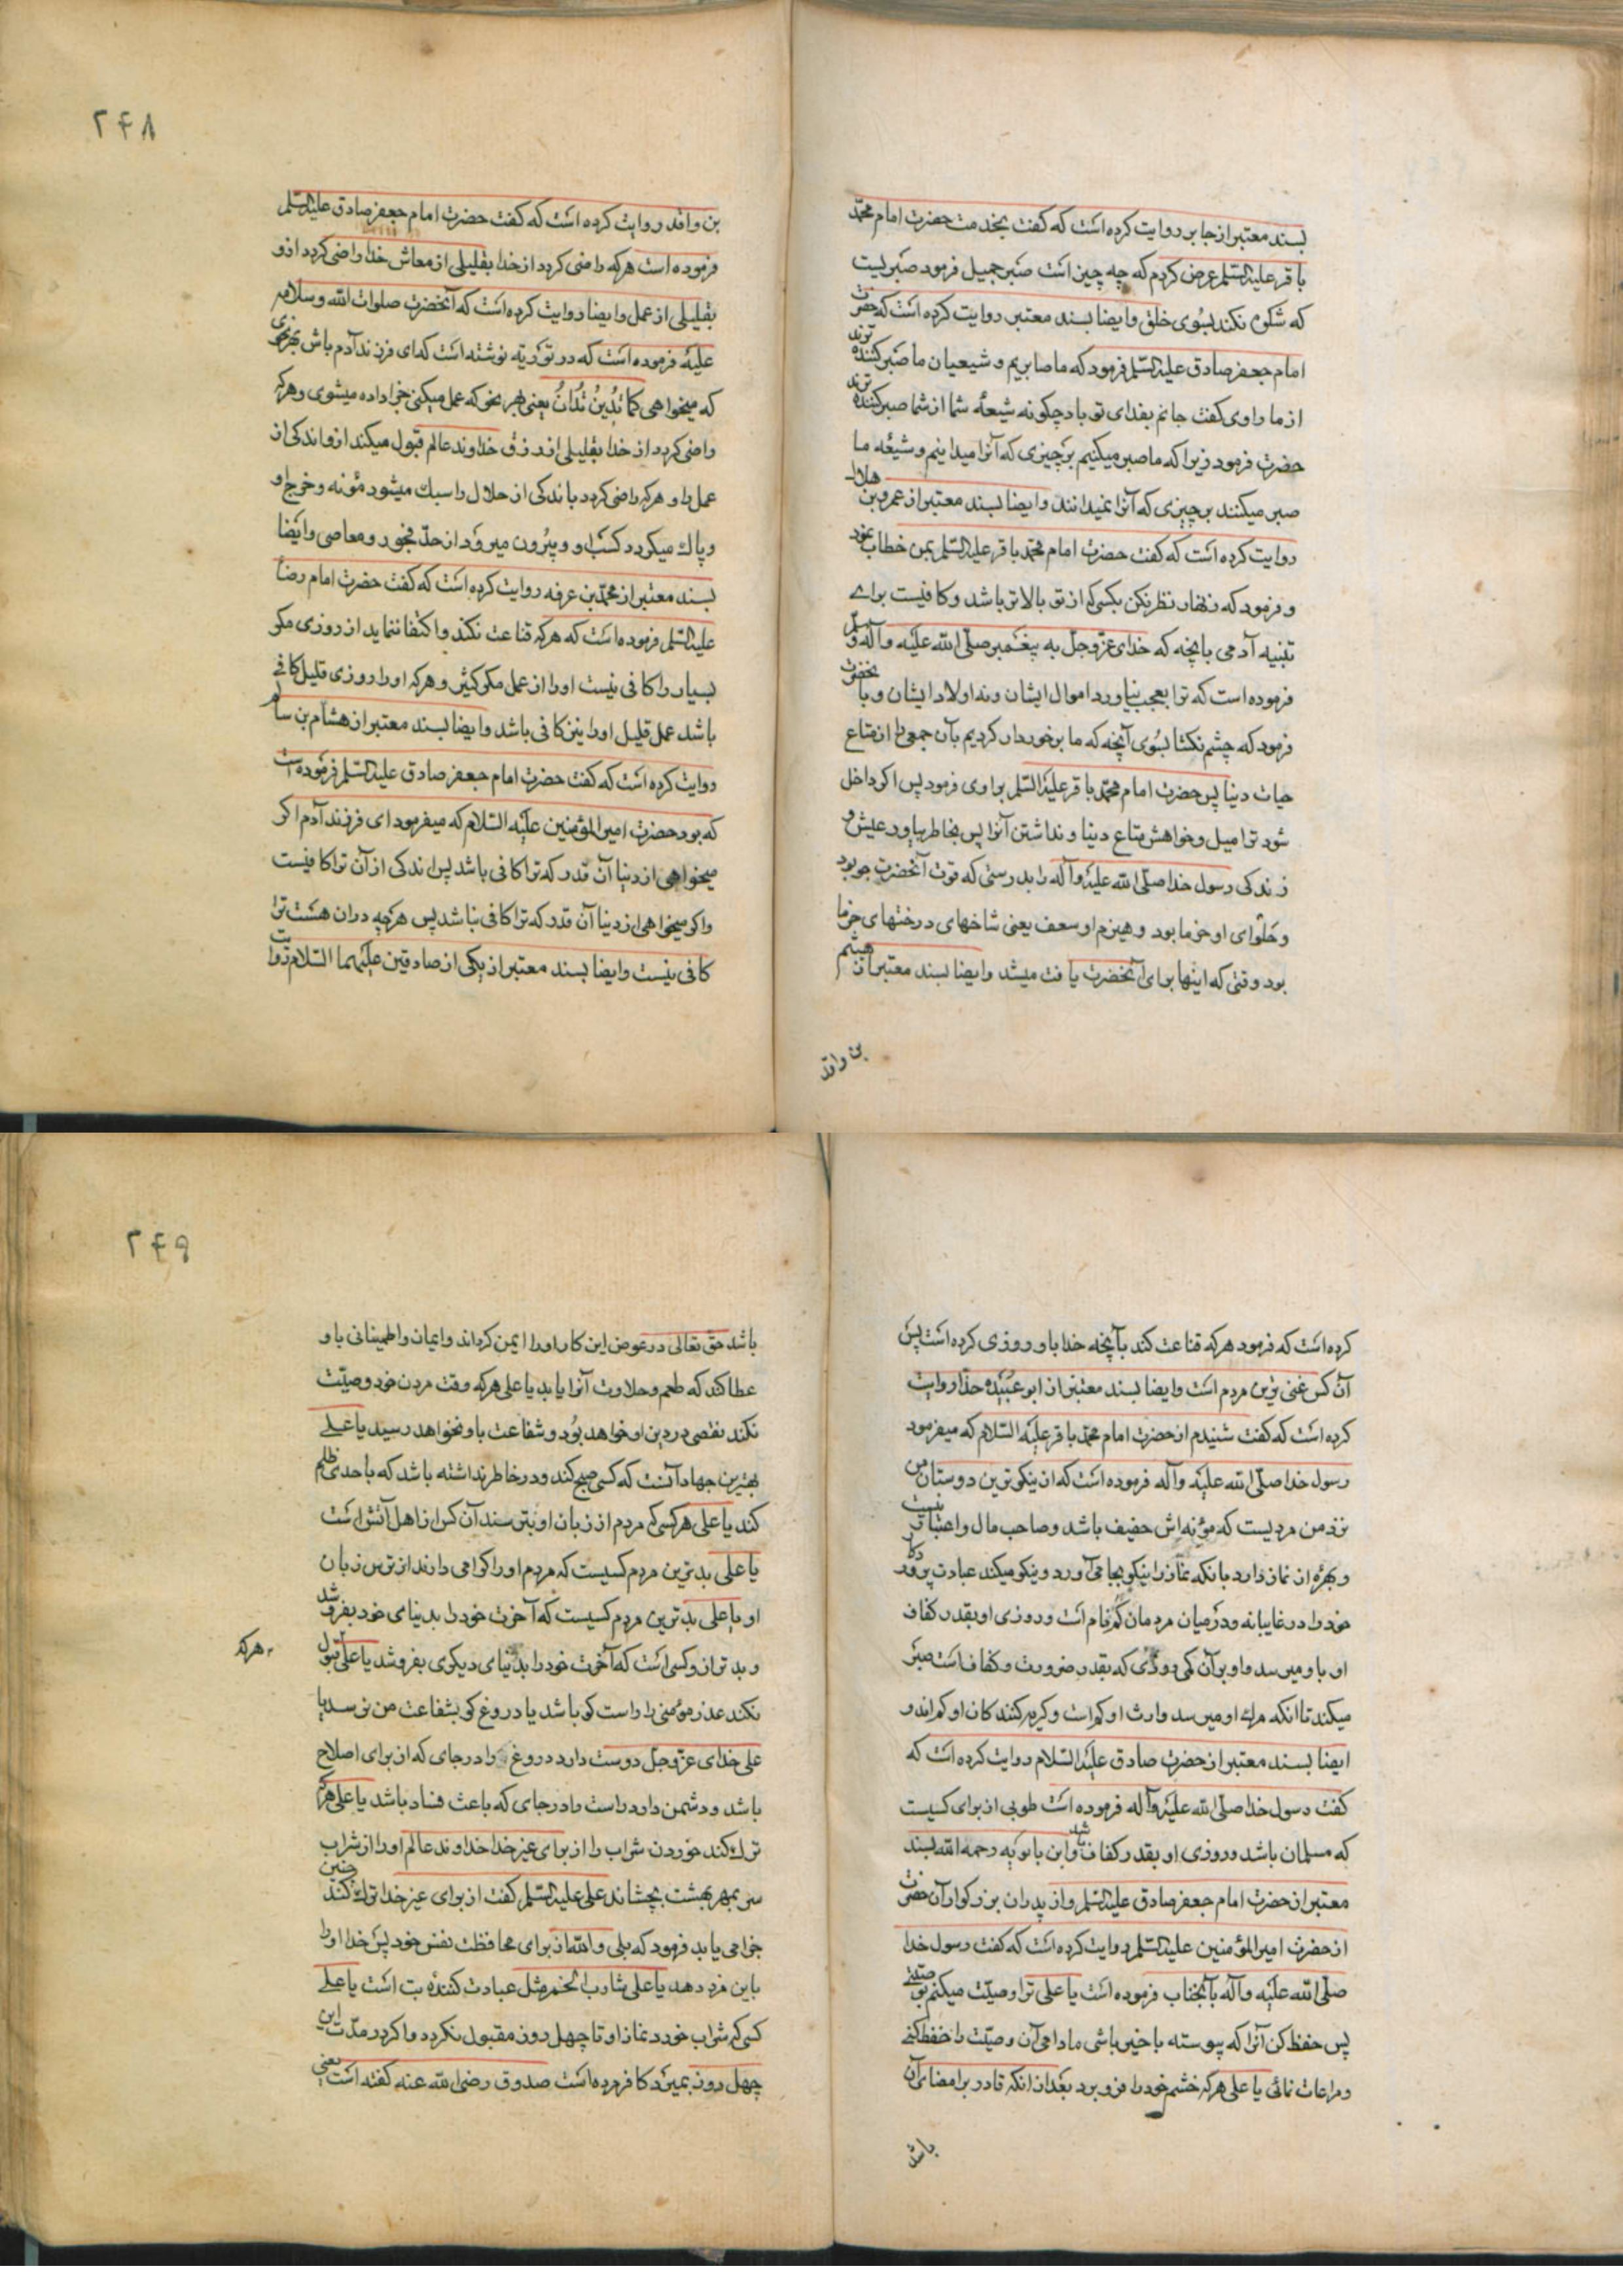 بسند معتبر از جابر روایت کرده است که گفت بخدمت حضرت امام محمّد
باقر علیه السلم عرض کردم که چه چیز است صبر جمیل فرمود صبریست
که شکوه نکند بسوی خلق و ایضا بسند معتبر روایت کرده است که حضرت
امام جعفر صادق علیه السلم فرمود که ما صابریم و شیعیان ما صبر کننده ترند
از ما راوی گفت جانم بفدای تو باد چکونه شیعهٔ شما از شما صبر کننده ترند
حضرت فرمود زیرا که ما صبر میکنیم بر چیزی که آنرا میدانیم و شیعهٔ ما
صبر میکنند بر چیزی که آنرا نمیدانند و ایضا بسند معتبر از عمرو بن هلال
روایت کرده است که گفت حضرت امام محمّد باقر علیه السلم بمن خطاب نمود
و فرمود که زنهار نظر نکن بکسی که از تو بالاتر باشد و کافیست برای
تنبیه آدمی بانچه که خدای عزّ و جلّ به پیغمبر صلّی الله علیه و آله و سلم
فرموده است که ترا بعجب نیاورد اموال ایشان و نه اولاد ایشان و بآنحضرت
فرمود که چشم نکشا بسوی آنچه که ما برخوردار کردیم بآن جمعی را از متاع
حیات دنیا پس حضرت امام محمّد باقر علیه السّلم براوی فرمود پس اکر داخل
شود ترا میل و خواهش متاع دنیا و نداشتن آنرا پس بخاطر بیاور عیش و
زندکی رسول خدا صلّی الله علیه و آله را بدرستی که قوت آنحضرت جو بود
و حلوای او خرما بود و هیزم او سعف یعنی شاخهای درختهای خرما
بود وقتی که اینها برای آنحضرت یافت میشد و ایضا بسند معتبر از هیثم
بن واقد
۲۴۸
بن واقد روایت کرده است که گفت حضرت امام جعفر صادق علیه السلم
فرموده است هرکه راضی کردد از خدا بقلیلی از معاش خدا راضی کردد از او
بقلیلی از عمل و ایضا روایت کرده است که آنحضرت صلوات الله و سلامه
علیه فرموده است که در توریة نوشته است که ای فرزند آدم باش بهر نحوی
که میخواهی کَمَا تُدِینُ تُدَانُ یعنی بهر نحو که عمل میکنی جزا داده میشوی و هرکه
راضی کردد از خدا بقلیلی از رزق خداوند عالم قبول میکند از او اندکی از
عمل را و هرکه راضی کردد باندکی از حلال را سبک میشود مؤنه و خرج او
و پاک میکردد کسب او و بیرون میرود از حدّ فجور و معاصی و ایضا
بسند معتبر از محمّد بن عرفه روایت کرده است که گفت حضرت امام رضا
علیه السّلم فرموده است که هرکه قناعت نکند و اکتفا ننماید از روزی مکر
بسیار را کافی نیست اورا از عمل مکر کثیر و هرکه اورا روزی قلیل کافی
باشد عمل قلیل اورا نیز کافی باشد و ایضا بسند معتبر از هشام بن سالم
روایت کرده است که گفت حضرت امام جعفر صادق علیه السلم فرموده است
که بود حضرت امیر المؤمنین علیه السلام که میفرمود ای فرزند آدم اکر
میخواهی از دنیا آن قدر که ترا کافی باشد پس اندکی از آن ترا کافیست
و اکر میخواهی از دنیا آن قدر که ترا کافی نباشد پس هرچه در ان هست ترا
کافی نیست و ایضا بسند معتبر از یکی از صادقین علیهما السّلام روایت
کرده است که فرمود هرکه قناعت کند بآنچه خدا باو روزی کرده است پس
آن کس غنی ترین مردم است و ایضا بسند معتبر از ابو عبیده حذا روایت
کرده است که گفت شنیدم از حضرت امام محمّد باقر علیه السّلام که میفرمود
رسول خدا صلّی الله علیه و آله فرموده است که از نیکوترین دوستان من
نزد من مردیست که مؤنه اش خفیف باشد و صاحب مال و اعتبار نیست
و بهره از نماز دارد بانکه نماز را نیکو بجا می آورد و نیکو میکند عبادت پروردکار
خود را در غایبانه و در میان مردمان کم نام است و روزی او بقدر کفاف
او باو میرسد و او بر آن کمی روزی که بقدر ضرورت و کفاف است صبر
میکند تا انکه مرک او میرسد وارث او کم است و کریه کنندکان او کم اند و
ایضا بسند معتبر از حضرت صادق علیه السّلام روایت کرده است که
گفت رسول خدا صلّی الله علیه و آله فرموده است طوبی از برای کسیست
که مسلمان باشد و روزی او بقدر کفاف باشد و ابن بابویه رحمه الله بسند
معتبر از حضرت امام جعفر صادق علیه السّلم و از پدران بزرکوار آن حضرت
از حضرت امیر المؤمنین علیه السّلم روایت کرده است که گفت رسول خدا
صلّی الله علیه و آله بآنجناب فرموده است یا علی ترا وصیّت میکنم بوصیّتی
پس حفظ کن آنرا که پیوسته با خیر باشی مادامی آن وصیّت را حفظ کنی
و مراعات نمائی یا علی هرکه خشم خود را فرو برد بعد از انکه قادر بر امضای آن
باشد
۲۴۹
باشد حق تعالی در عوض این کار اورا ایمن کرداند و ایمان و اطمینانی باو
عطا کند که طعم و حلاوت آنرا یابد یا علی هرکه وقت مردن خود وصیّت
نکند نقصی در دین او خواهد بود و شفاعت باو نخواهد رسید یا علی
بهترین جهاد آنست که کسی صبح کند و در خاطر نداشته باشد که باحدی ظلم
کند یا علی هر کسی که مردم از زبان او بترسند آن کس از اهل آتش است
یا علی بدترین مردم کسیست که مردم اورا کرامی دارند از ترس زبان
او یا علی بدترین مردم کسیست که آخرت خود را بدنیای خود بفروشد
و بدتر از او کسی است که آخرت خود را بدنیای دیکری بفروشد یا علی هرکه قبول
نکند عذر مؤمنی را راست کو باشد یا دروغ کو بشفاعت من نرسد یا
علی خدای عزّ و جلّ دوست دارد دروغ را در جای که از برای اصلاح
باشد و دشمن دارد راست را در جای که باعث فساد باشد یا علی هرکه
ترک کند خوردن شراب را از برای غیر خدا خداوند عالم اورا از شراب
سر بمهر بهشت بچشاند علی علیه السّلم گفت از برای غیر خدا ترک کند چنین
جزا می یابد فرمود که بلی والله از برای محافظت نفس خود پس خدا اورا
باین مزد دهد یا علی شارب الخمر مثل عبادت کنندهٔ بت است یا علی
کسی که شراب خورد نماز او تا چهل روز مقبول نکردد و اکر در مدّت این
چهل روز بمیرد کافر مرده است صدوق رضی الله عنه گفته است یعنی